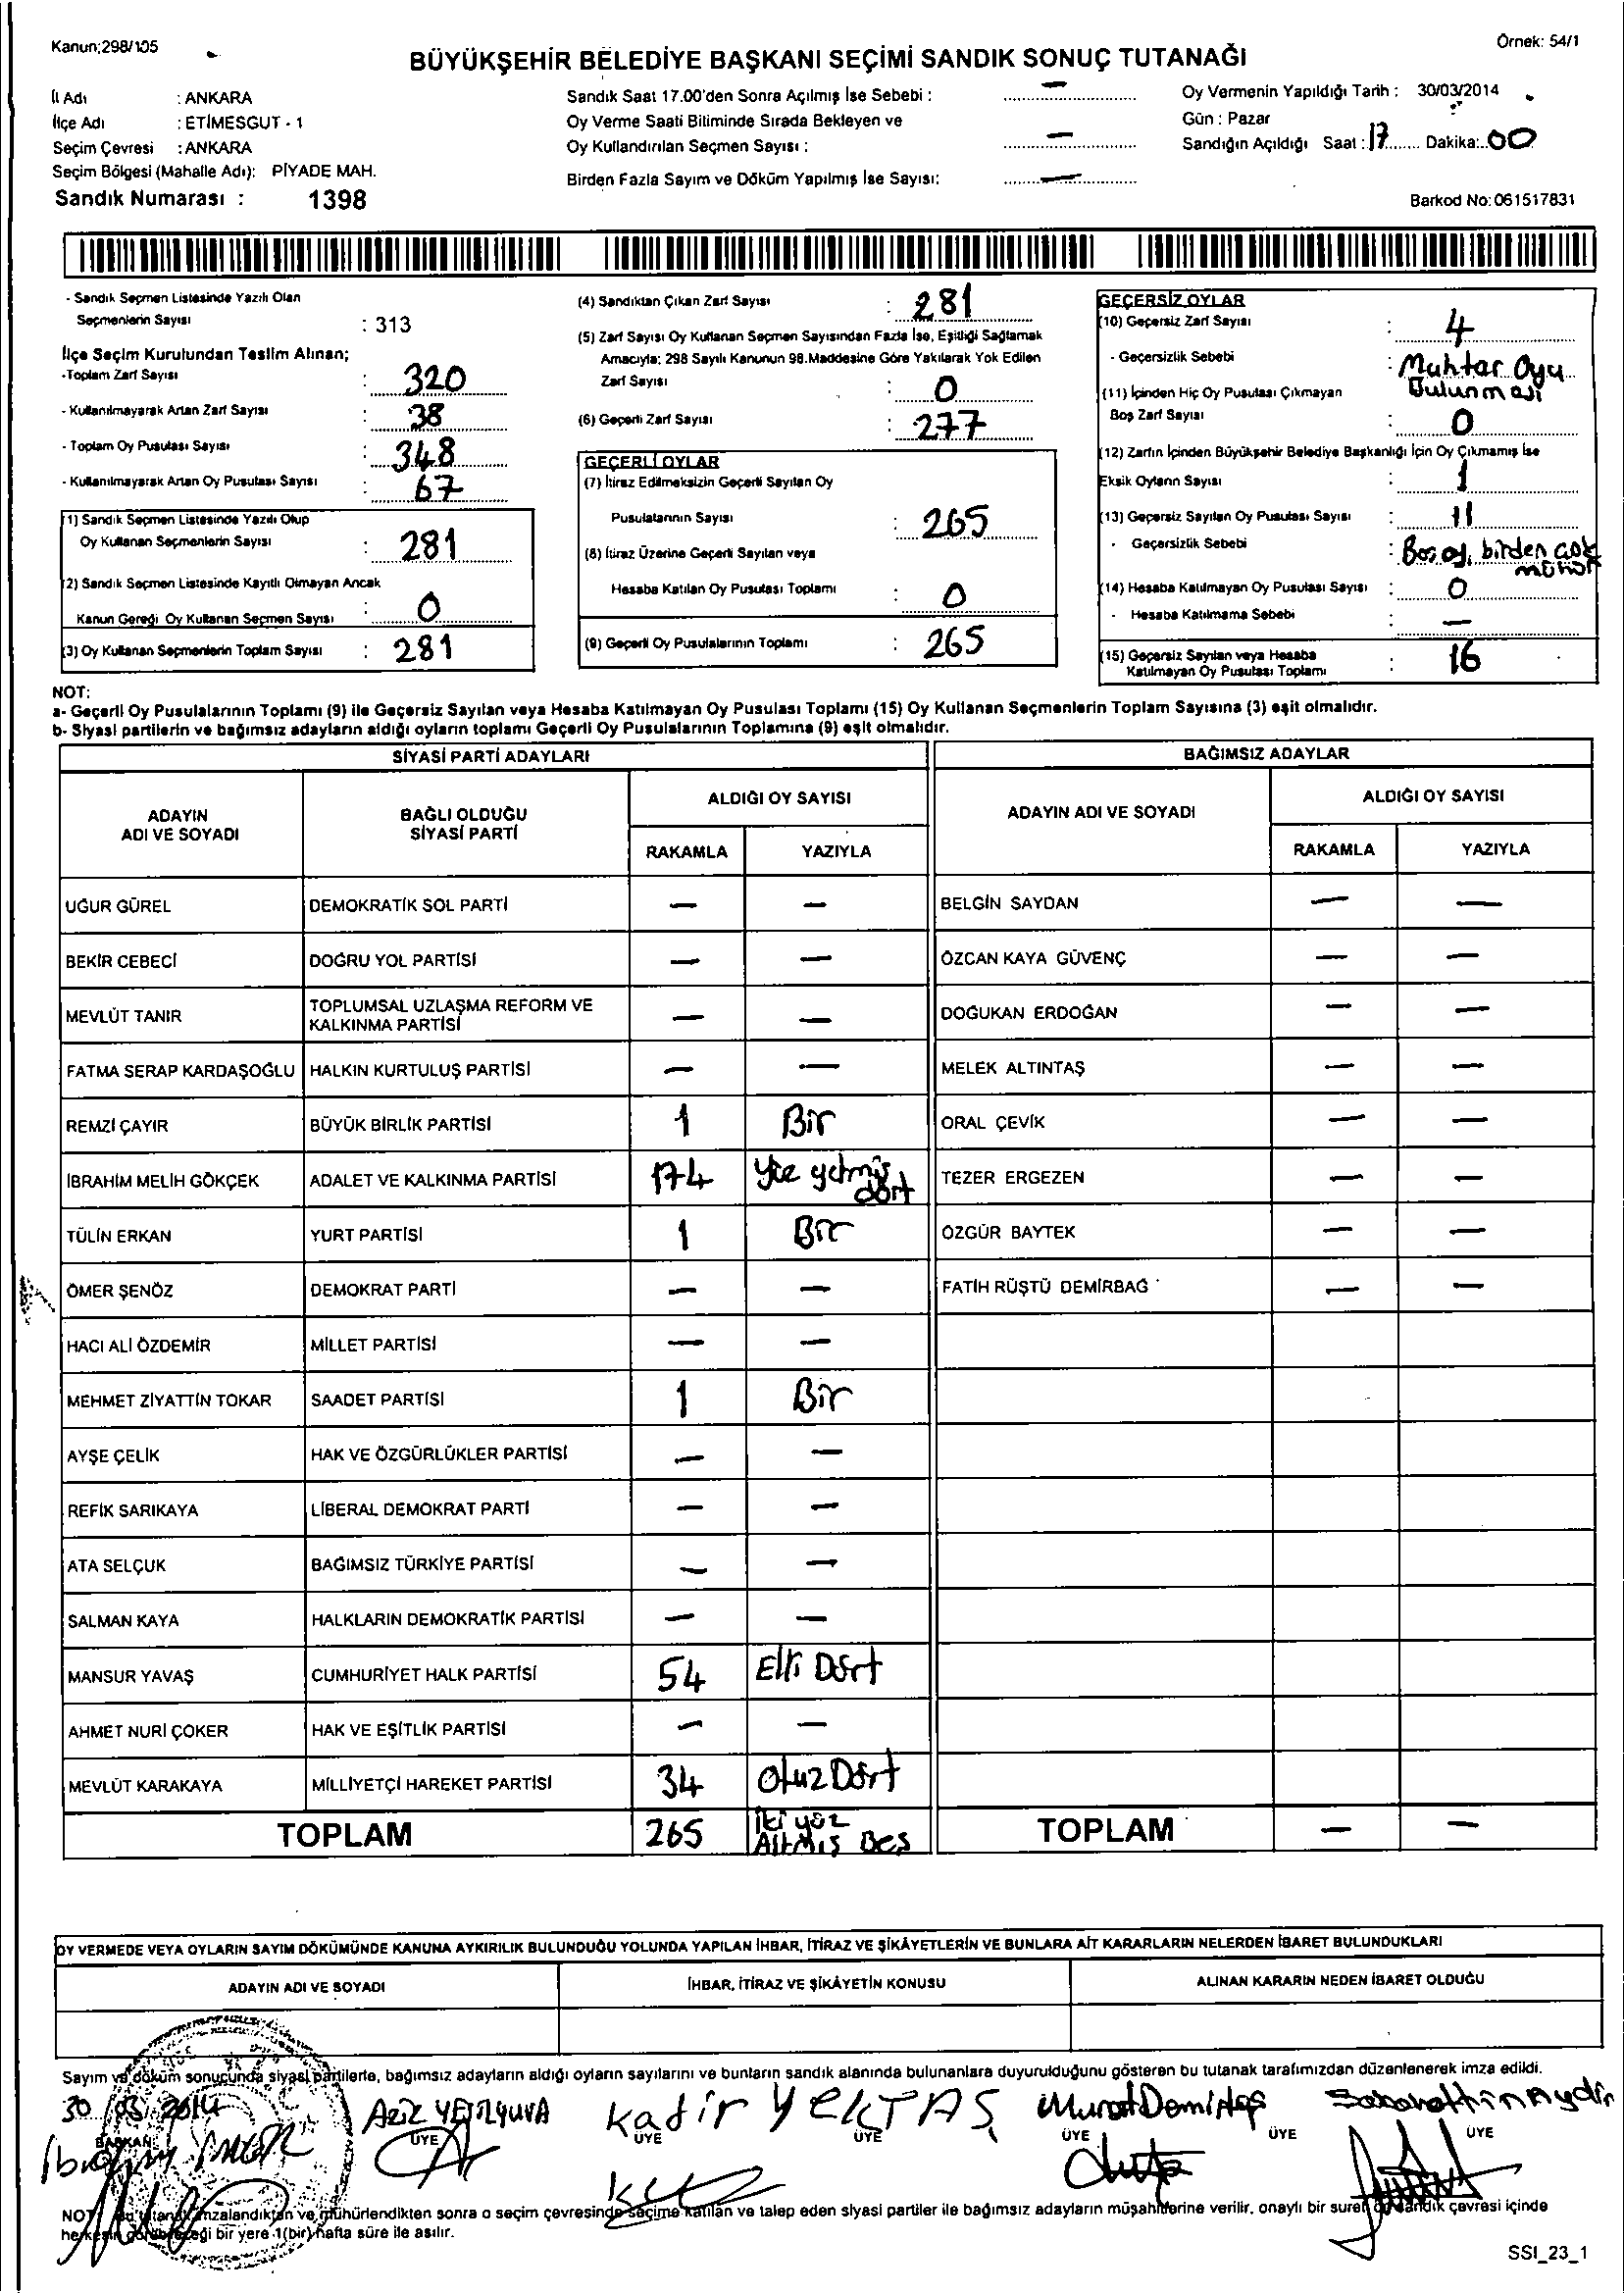 Kanun;298/105
Örnek: 54/1
BÜYÜKŞEHİR BELEDİYE BAŞKANI SEÇİMİ SANDIK SONUÇ TUTANAĞI
İl Adı : ANKARA
İlçe Adı : ETİMESGUT - 1
Seçim Çevresi : ANKARA
Seçim Bölgesi (Mahalle Adı): PİYADE MAH.
Sandık Numarası : 1398
Sandık Saat 17.00'den Sonra Açılmış İse Sebebi : —
Oy Verme Saati Bitiminde Sırada Bekleyen ve
Oy Kullandırılan Seçmen Sayısı : —
Birden Fazla Sayım ve Döküm Yapılmış İse Sayısı: —
Oy Vermenin Yapıldığı Tarih : 30/03/2014
Gün : Pazar
Sandığın Açıldığı Saat : 17 Dakika: 00
Barkod No: 061517831
- Sandık Seçmen Listesinde Yazılı Olan
Seçmenlerin Sayısı : 313
İlçe Seçim Kurulundan Teslim Alınan;
-Toplam Zarf Sayısı : 320
- Kullanılmayarak Artan Zarf Sayısı : 38
- Toplam Oy Pusulası Sayısı : 348
- Kullanılmayarak Artan Oy Pusulası Sayısı : 67
(1) Sandık Seçmen Listesinde Yazılı Olup
Oy Kullanan Seçmenlerin Sayısı : 281
(2) Sandık Seçmen Listesinde Kayıtlı Olmayan Ancak
Kanun Gereği Oy Kullanan Seçmen Sayısı : 0
(3) Oy Kullanan Seçmenlerin Toplam Sayısı : 281
(4) Sandıktan Çıkan Zarf Sayısı : 281
(5) Zarf Sayısı Oy Kullanan Seçmen Sayısından Fazla İse, Eşitliği Sağlamak
Amacıyla; 298 Sayılı Kanunun 98.Maddesine Göre Yakılarak Yok Edilen
Zarf Sayısı : 0
(6) Geçerli Zarf Sayısı : 277
GEÇERLİ OYLAR
(7) İtiraz Edilmeksizin Geçerli Sayılan Oy
Pusulalarının Sayısı : 265
(8) İtiraz Üzerine Geçerli Sayılan veya
Hesaba Katılan Oy Pusulası Toplamı : 0
(9) Geçerli Oy Pusulalarının Toplamı : 265
GEÇERSİZ OYLAR
(10) Geçersiz Zarf Sayısı : 4
- Geçersizlik Sebebi : Muhtar Oyu
Bulunması
(11) İçinden Hiç Oy Pusulası Çıkmayan
Boş Zarf Sayısı : 0
(12) Zarfın İçinden Büyükşehir Belediye Başkanlığı İçin Oy Çıkmamış İse
Eksik Oyların Sayısı : 1
(13) Geçersiz Sayılan Oy Pusulası Sayısı : 11
- Geçersizlik Sebebi : Boş oy, birden çok
mühür
(14) Hesaba Katılmayan Oy Pusulası Sayısı : 0
- Hesaba Katılmama Sebebi : —
(15) Geçersiz Sayılan veya Hesaba
Katılmayan Oy Pusulası Toplamı : 16
NOT:
a- Geçerli Oy Pusulalarının Toplamı (9) ile Geçersiz Sayılan veya Hesaba Katılmayan Oy Pusulası Toplamı (15) Oy Kullanan Seçmenlerin Toplam Sayısına (3) eşit olmalıdır.
b- Siyasi partilerin ve bağımsız adayların aldığı oyların toplamı Geçerli Oy Pusulalarının Toplamına (9) eşit olmalıdır.
SİYASİ PARTİ ADAYLARI
BAĞIMSIZ ADAYLAR
ADAYIN
ADI VE SOYADI
BAĞLI OLDUĞU
SİYASİ PARTİ
ALDIĞI OY SAYISI
RAKAMLA YAZIYLA
ADAYIN ADI VE SOYADI
ALDIĞI OY SAYISI
RAKAMLA YAZIYLA
UĞUR GÜREL DEMOKRATİK SOL PARTİ — — BELGİN SAYDAN — —
BEKİR CEBECİ DOĞRU YOL PARTİSİ — — ÖZCAN KAYA GÜVENÇ — —
MEVLÜT TANIR TOPLUMSAL UZLAŞMA REFORM VE
KALKINMA PARTİSİ — — DOĞUKAN ERDOĞAN — —
FATMA SERAP KARDAŞOĞLU HALKIN KURTULUŞ PARTİSİ — — MELEK ALTINTAŞ — —
REMZİ ÇAYIR BÜYÜK BİRLİK PARTİSİ 1 Bir ORAL ÇEVİK — —
İBRAHİM MELİH GÖKÇEK ADALET VE KALKINMA PARTİSİ 174 Yüz yetmiş
dört TEZER ERGEZEN — —
TÜLİN ERKAN YURT PARTİSİ 1 Bir ÖZGÜR BAYTEK — —
ÖMER ŞENÖZ DEMOKRAT PARTİ — — FATİH RÜŞTÜ DEMİRBAĞ — —
HACI ALİ ÖZDEMİR MİLLET PARTİSİ — —
MEHMET ZİYATTİN TOKAR SAADET PARTİSİ 1 Bir
AYŞE ÇELİK HAK VE ÖZGÜRLÜKLER PARTİSİ — —
REFİK SARIKAYA LİBERAL DEMOKRAT PARTİ — —
ATA SELÇUK BAĞIMSIZ TÜRKİYE PARTİSİ — —
SALMAN KAYA HALKLARIN DEMOKRATİK PARTİSİ — —
MANSUR YAVAŞ CUMHURİYET HALK PARTİSİ 54 Elli Dört
AHMET NURİ ÇOKER HAK VE EŞİTLİK PARTİSİ — —
MEVLÜT KARAKAYA MİLLİYETÇİ HAREKET PARTİSİ 34 Otuz Dört
TOPLAM 265 İki yüz
Altmış Beş TOPLAM — —
OY VERMEDE VEYA OYLARIN SAYIM DÖKÜMÜNDE KANUNA AYKIRILIK BULUNDUĞU YOLUNDA YAPILAN İHBAR, İTİRAZ VE ŞİKÂYETLERİN VE BUNLARA AİT KARARLARIN NELERDEN İBARET BULUNDUKLARI
ADAYIN ADI VE SOYADI İHBAR, İTİRAZ VE ŞİKÂYETİN KONUSU ALINAN KARARIN NEDEN İBARET OLDUĞU
Sayım ve döküm sonucunda siyasi partilerle, bağımsız adayların aldığı oyların sayılarını ve bunların sandık alanında bulunanlara duyurulduğunu gösteren bu tutanak tarafımızdan düzenlenerek imza edildi.
30 03 2014
Aziz Kadir YEKTAŞ Murat Demirtaş Sabahattin Aydın
BAŞKAN ÜYE ÜYE ÜYE ÜYE ÜYE ÜYE
İbrahim
NOT: Bu tutanak imzalandıktan ve mühürlendikten sonra o seçim çevresinde seçime katılan ve talep eden siyasi partiler ile bağımsız adayların müşahitlerine verilir, onaylı bir sureti de sandık çevresi içinde
herkesin görebileceği bir yere 1(bir) hafta süre ile asılır.
SSI_23_1